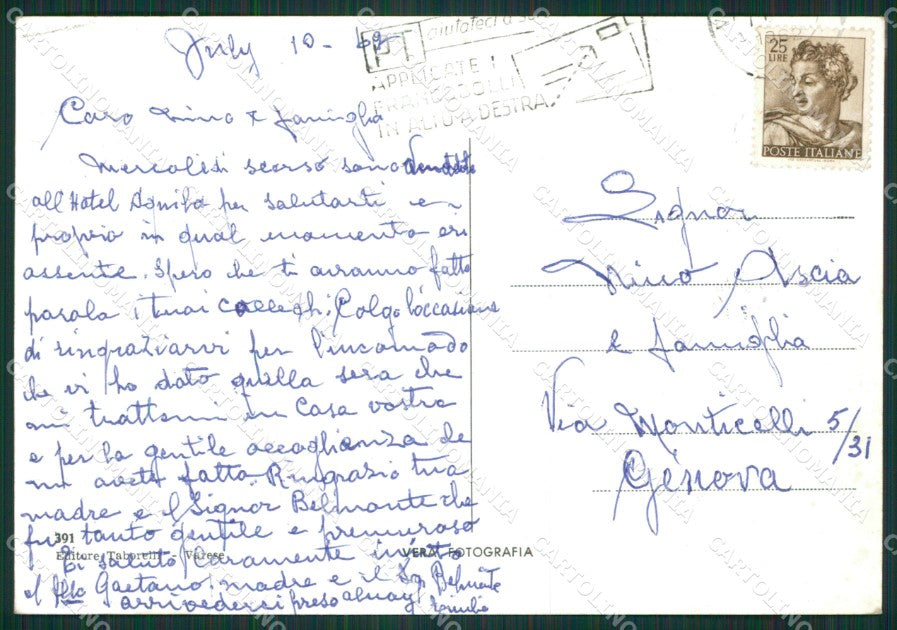 July 10-69
PT aiutateci a
APPLICATE I
FRANCOBOLLI
IN ALTO A DESTRA
25
LIRE
POSTE ITALIANE
Caro Nino & famiglia
Mercoledi scorso sono venuto
all'Hotel per salutarti e
proprio in qual momento eri
assente. Spero che ti avranno fatto
parola i tuoi colleghi. Colgo l'occasione
di ringraziarvi per l'incomodo
che vi ho dato quella sera che
mi trattenni in casa vostra
e per la gentile accoglienza che
mi avete fatto. Ringrazio tua
madre e il Signor Belmonte che
fu tanto gentile e premuroso
Ti saluto caramente
Gaetano. madre e il Sg Belmonte
arrivederci preso
Signor
Nino Ascia
e famiglia
Via Monticelli 5/31
Genova
391
Editore Taborelli - Varese
VERA FOTOGRAFIA
CARTOLINOMANIA